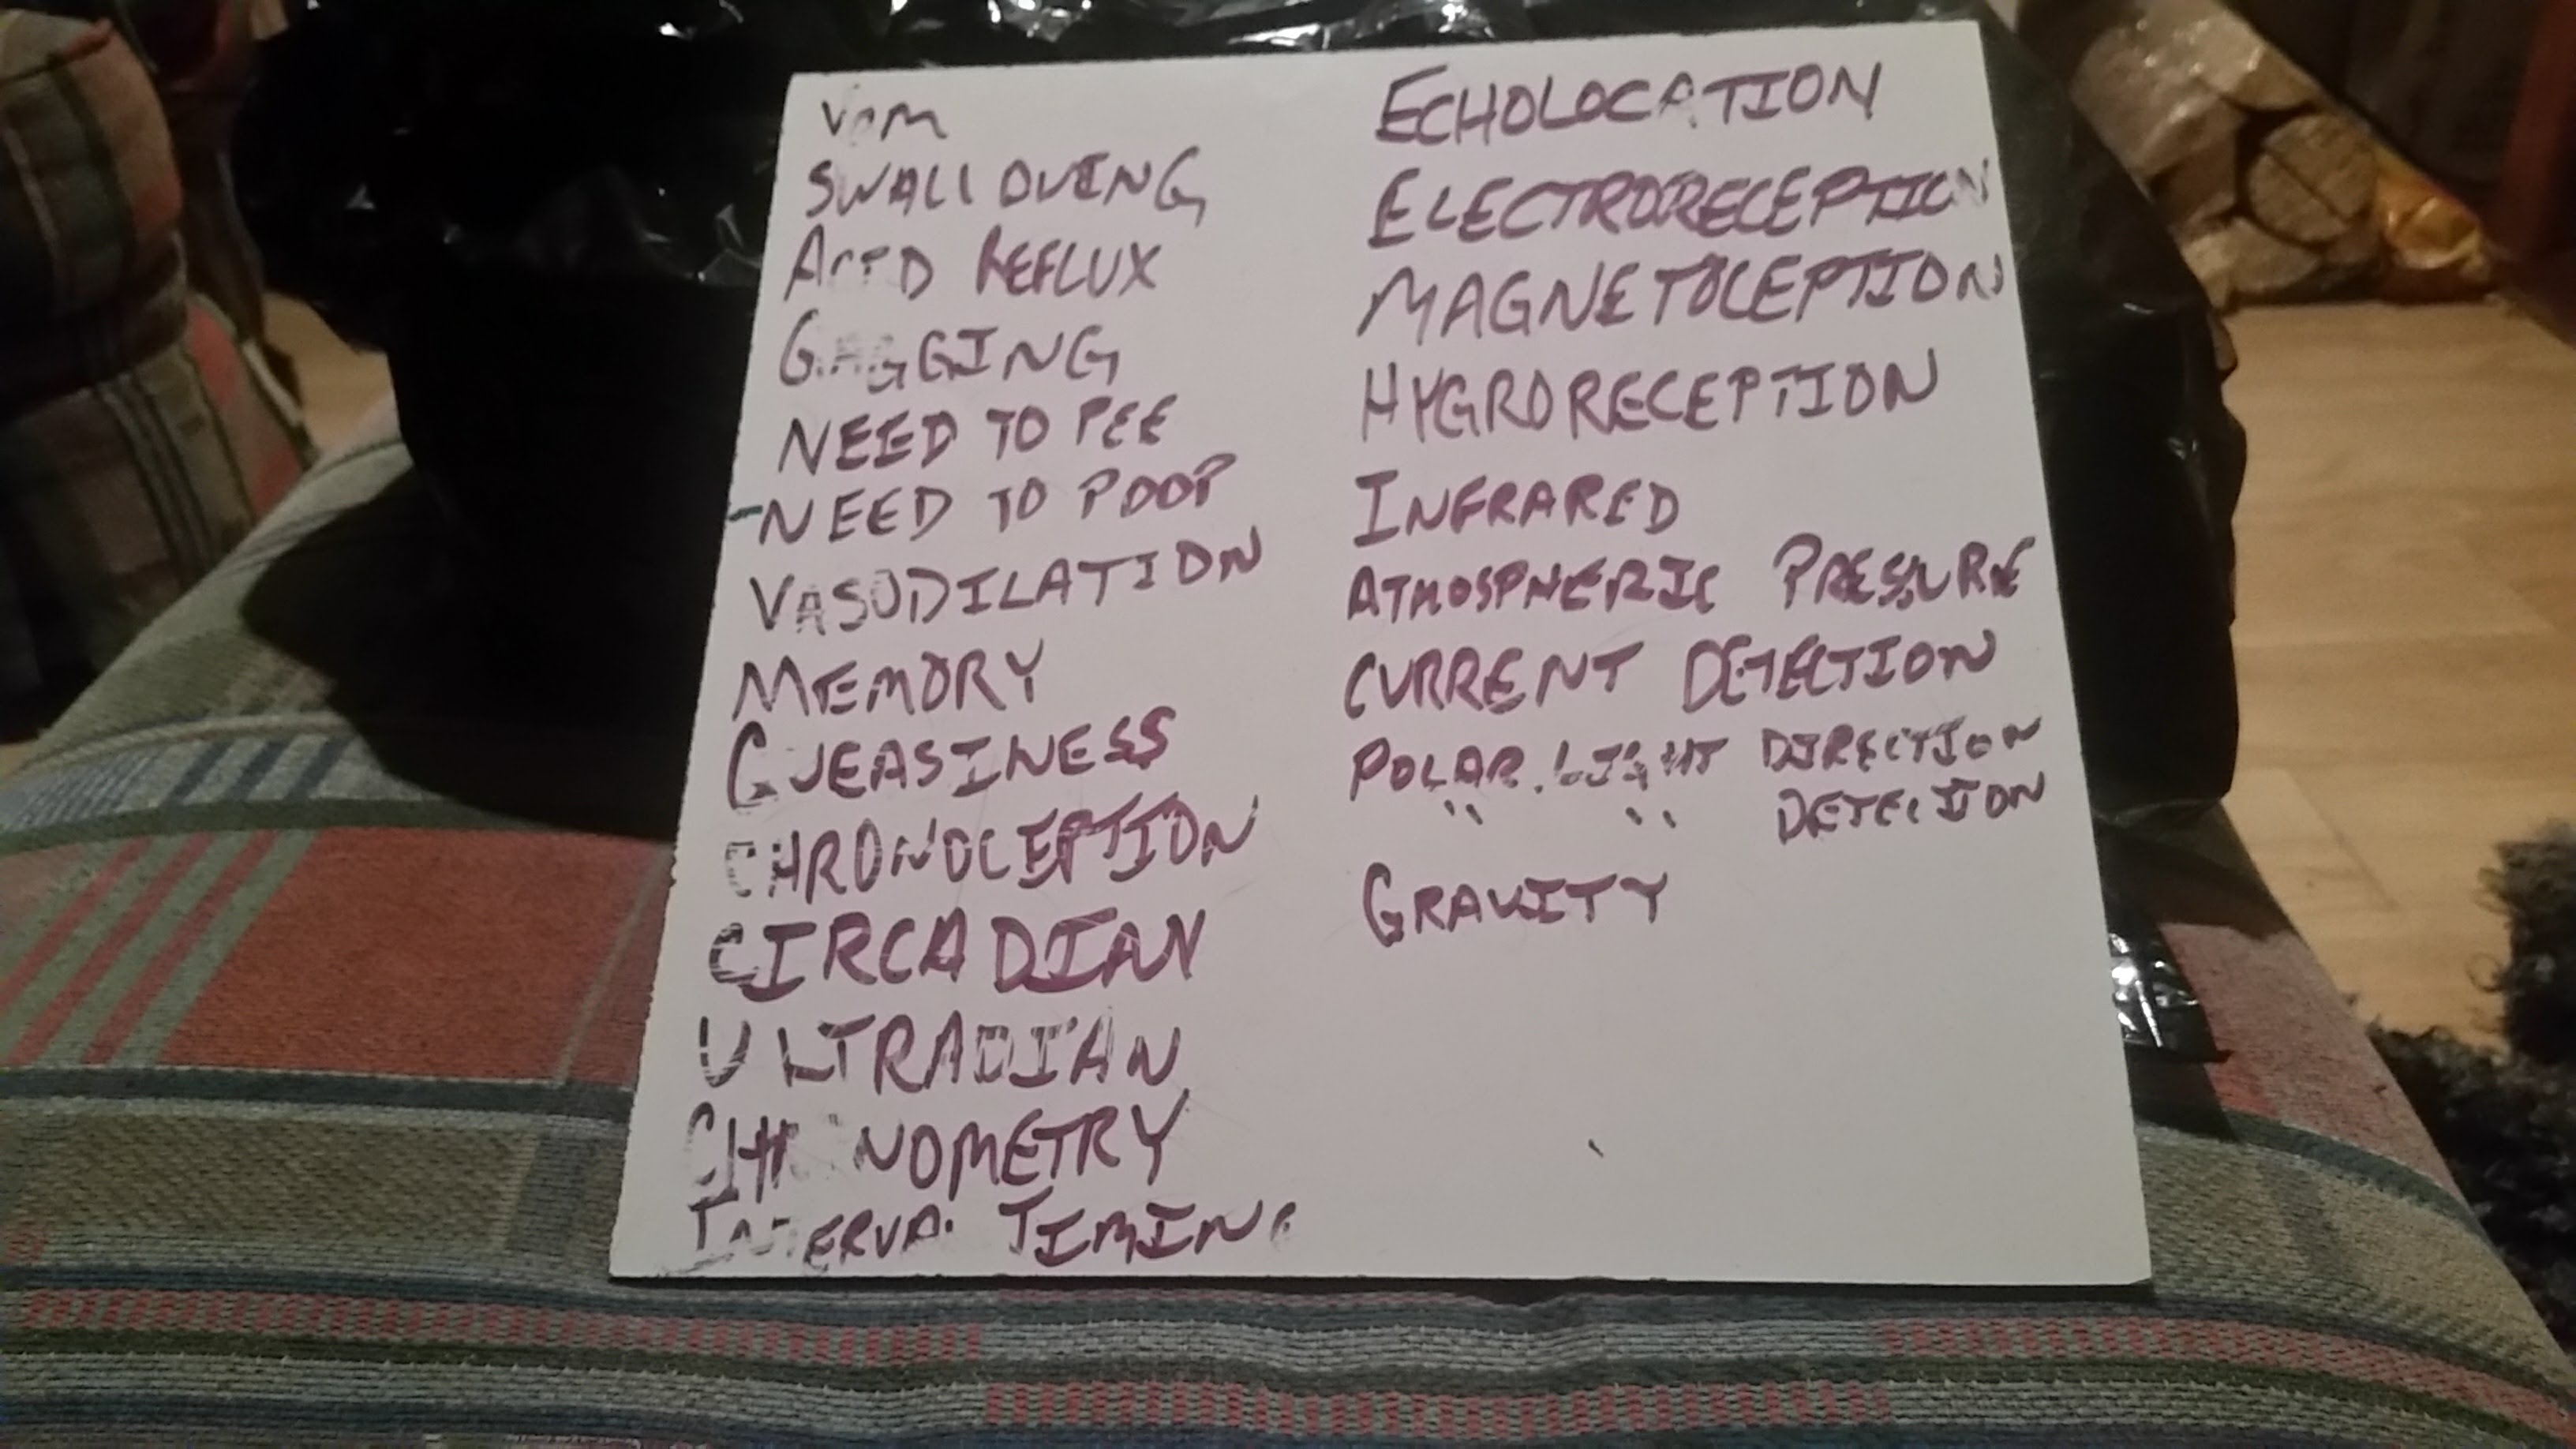 Vom
SWALLOWING
ACID REFLUX
GAGGING
NEED TO PEE
NEED TO POOP
VASODILATION
MEMORY
QUEASINESS
CHRONOCEPTION
CIRCADIAN
ULTRADIAN
CHRONOMETRY
INTERVAL TIMING
ECHOLOCATION
ELECTRORECEPTION
MAGNETOCEPTION
HYGRORECEPTION
INFRARED
ATMOSPHERIC PRESSURE
CURRENT DETECTION
POLAR. LIGHT DIRECTION
" " DETECTION
GRAVITY